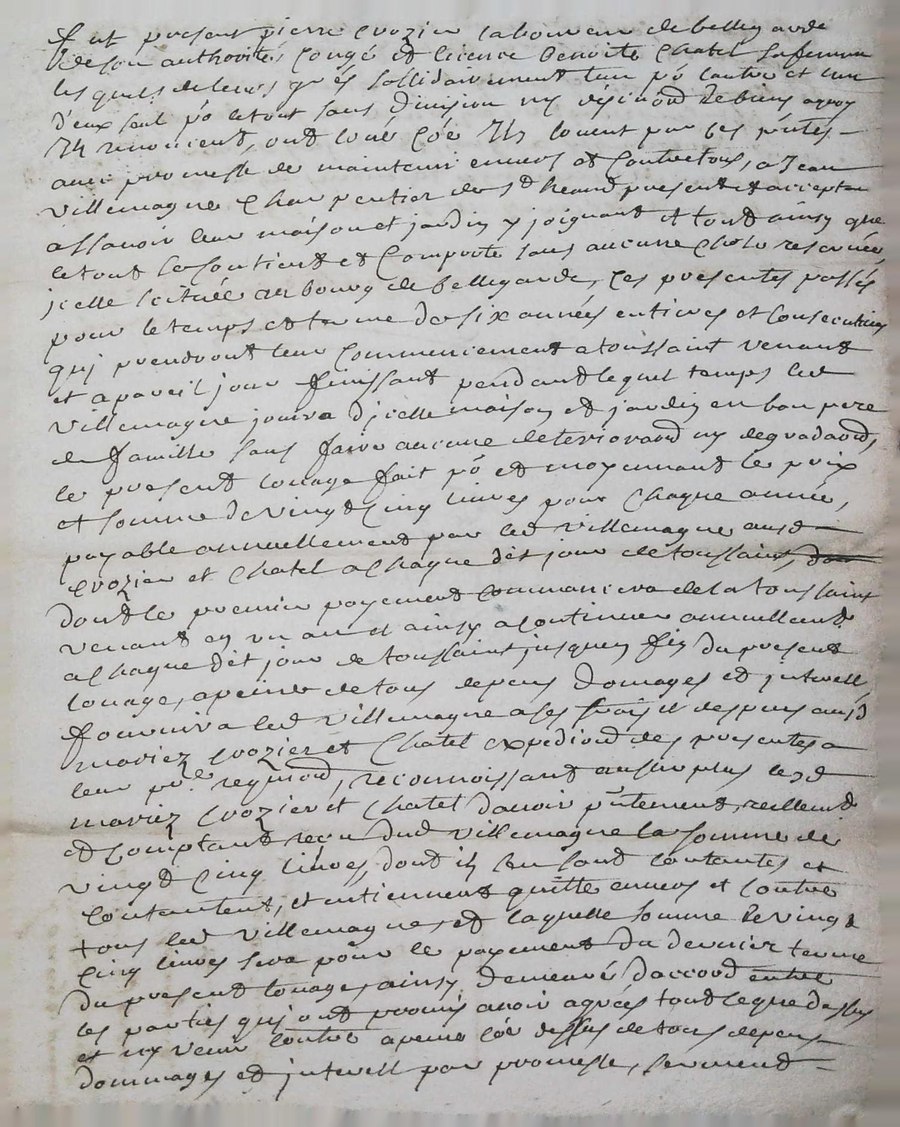 fut present pierre Crozier laboureur de bellegarde
de son authorité, Congé et licence benoite Chatel sa femme
lesquels de leurs grés sollidairement l'un pő l'autre et un
d'eux seul pő le tout sans division ny
renoncient, ont loué louent par ces pñtes
avec promesse de maintenir envers et Contre tous, a Jean
villemagne Charpentier de present et acceptan
assavoir leur maison et jardin y joignant et tout ainsy que
le tout se Contient et Comporte sans aucune Chose reservée
jcelle scituée au bourg de bellegarde, Ces presentes passés
pour le temps et terme de six années entieres et Consecutives
quj prendront leur Commencement a toussaint venant
et a pareil jour finissant pendant lequel temps led
villemagne jouira d'jcelle maison et jardin en bon pere
de famille sans faire aucune deterioraõn ny degradaõn,
le present louage fait pő et moyennant le prix
et somme de vingt Cinq livres pour Chaque année,
payable annuellement par led villemagne ausd
Crozier et Chatel a Chaque dit jour de toussaint,
dont le premier payement Commancera de la toussaint
venant en un an et ainsy a Continuer annuellemt
a Chaque dit jour de toussaint jusques fin du present
louage, a peine de tous depens domages et jnterest,
fournira led villemagne a ses frais et despens ausd
mariez Crozier et Chatel expediõn des presentes a
leur pre requiõn, reconnoissant au surplus lesd
mariez Crozier et Chatel d'avoir pñtement, reellemt
et Comptant reçu dud villemagne la somme de
vingt Cinq livres, dont ils sen sont Contentés et
Contentent, et en tiennent quitte envers et Contre
tous led villemagne, et laquelle somme de vingt
Cinq livres sera pour le payement du dernier terme
du present louage, ainsy demeuré d'accord entre
les parties quj ont promis avoir agrées tout le que dessus
et ny venir Contre a peine Cőe dessus de tous depens
dommages et jnterest par promesse, serment